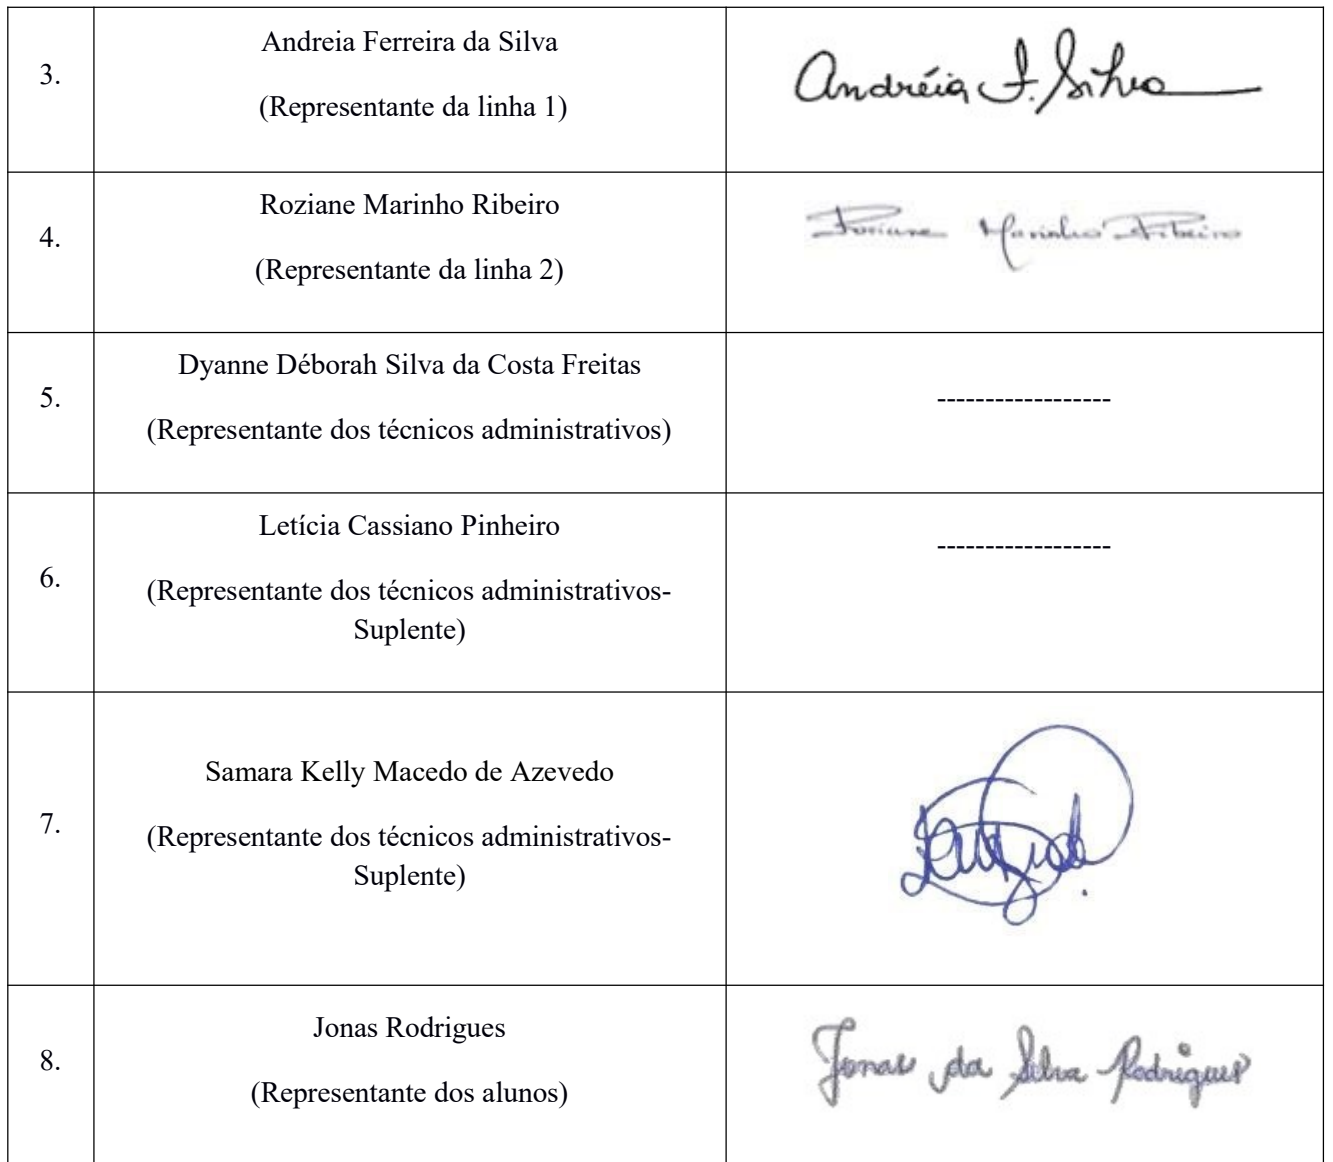 3.
Andreia Ferreira da Silva
(Representante da linha 1)
Andréia F. Silva
4.
Roziane Marinho Ribeiro
(Representante da linha 2)
Roziane Marinho Ribeiro
5.
Dyanne Déborah Silva da Costa Freitas
(Representante dos técnicos administrativos)
------------------
6.
Letícia Cassiano Pinheiro
(Representante dos técnicos administrativos-
Suplente)
------------------
7.
Samara Kelly Macedo de Azevedo
(Representante dos técnicos administrativos-
Suplente)
8.
Jonas Rodrigues
(Representante dos alunos)
Jonas da Silva Rodrigues